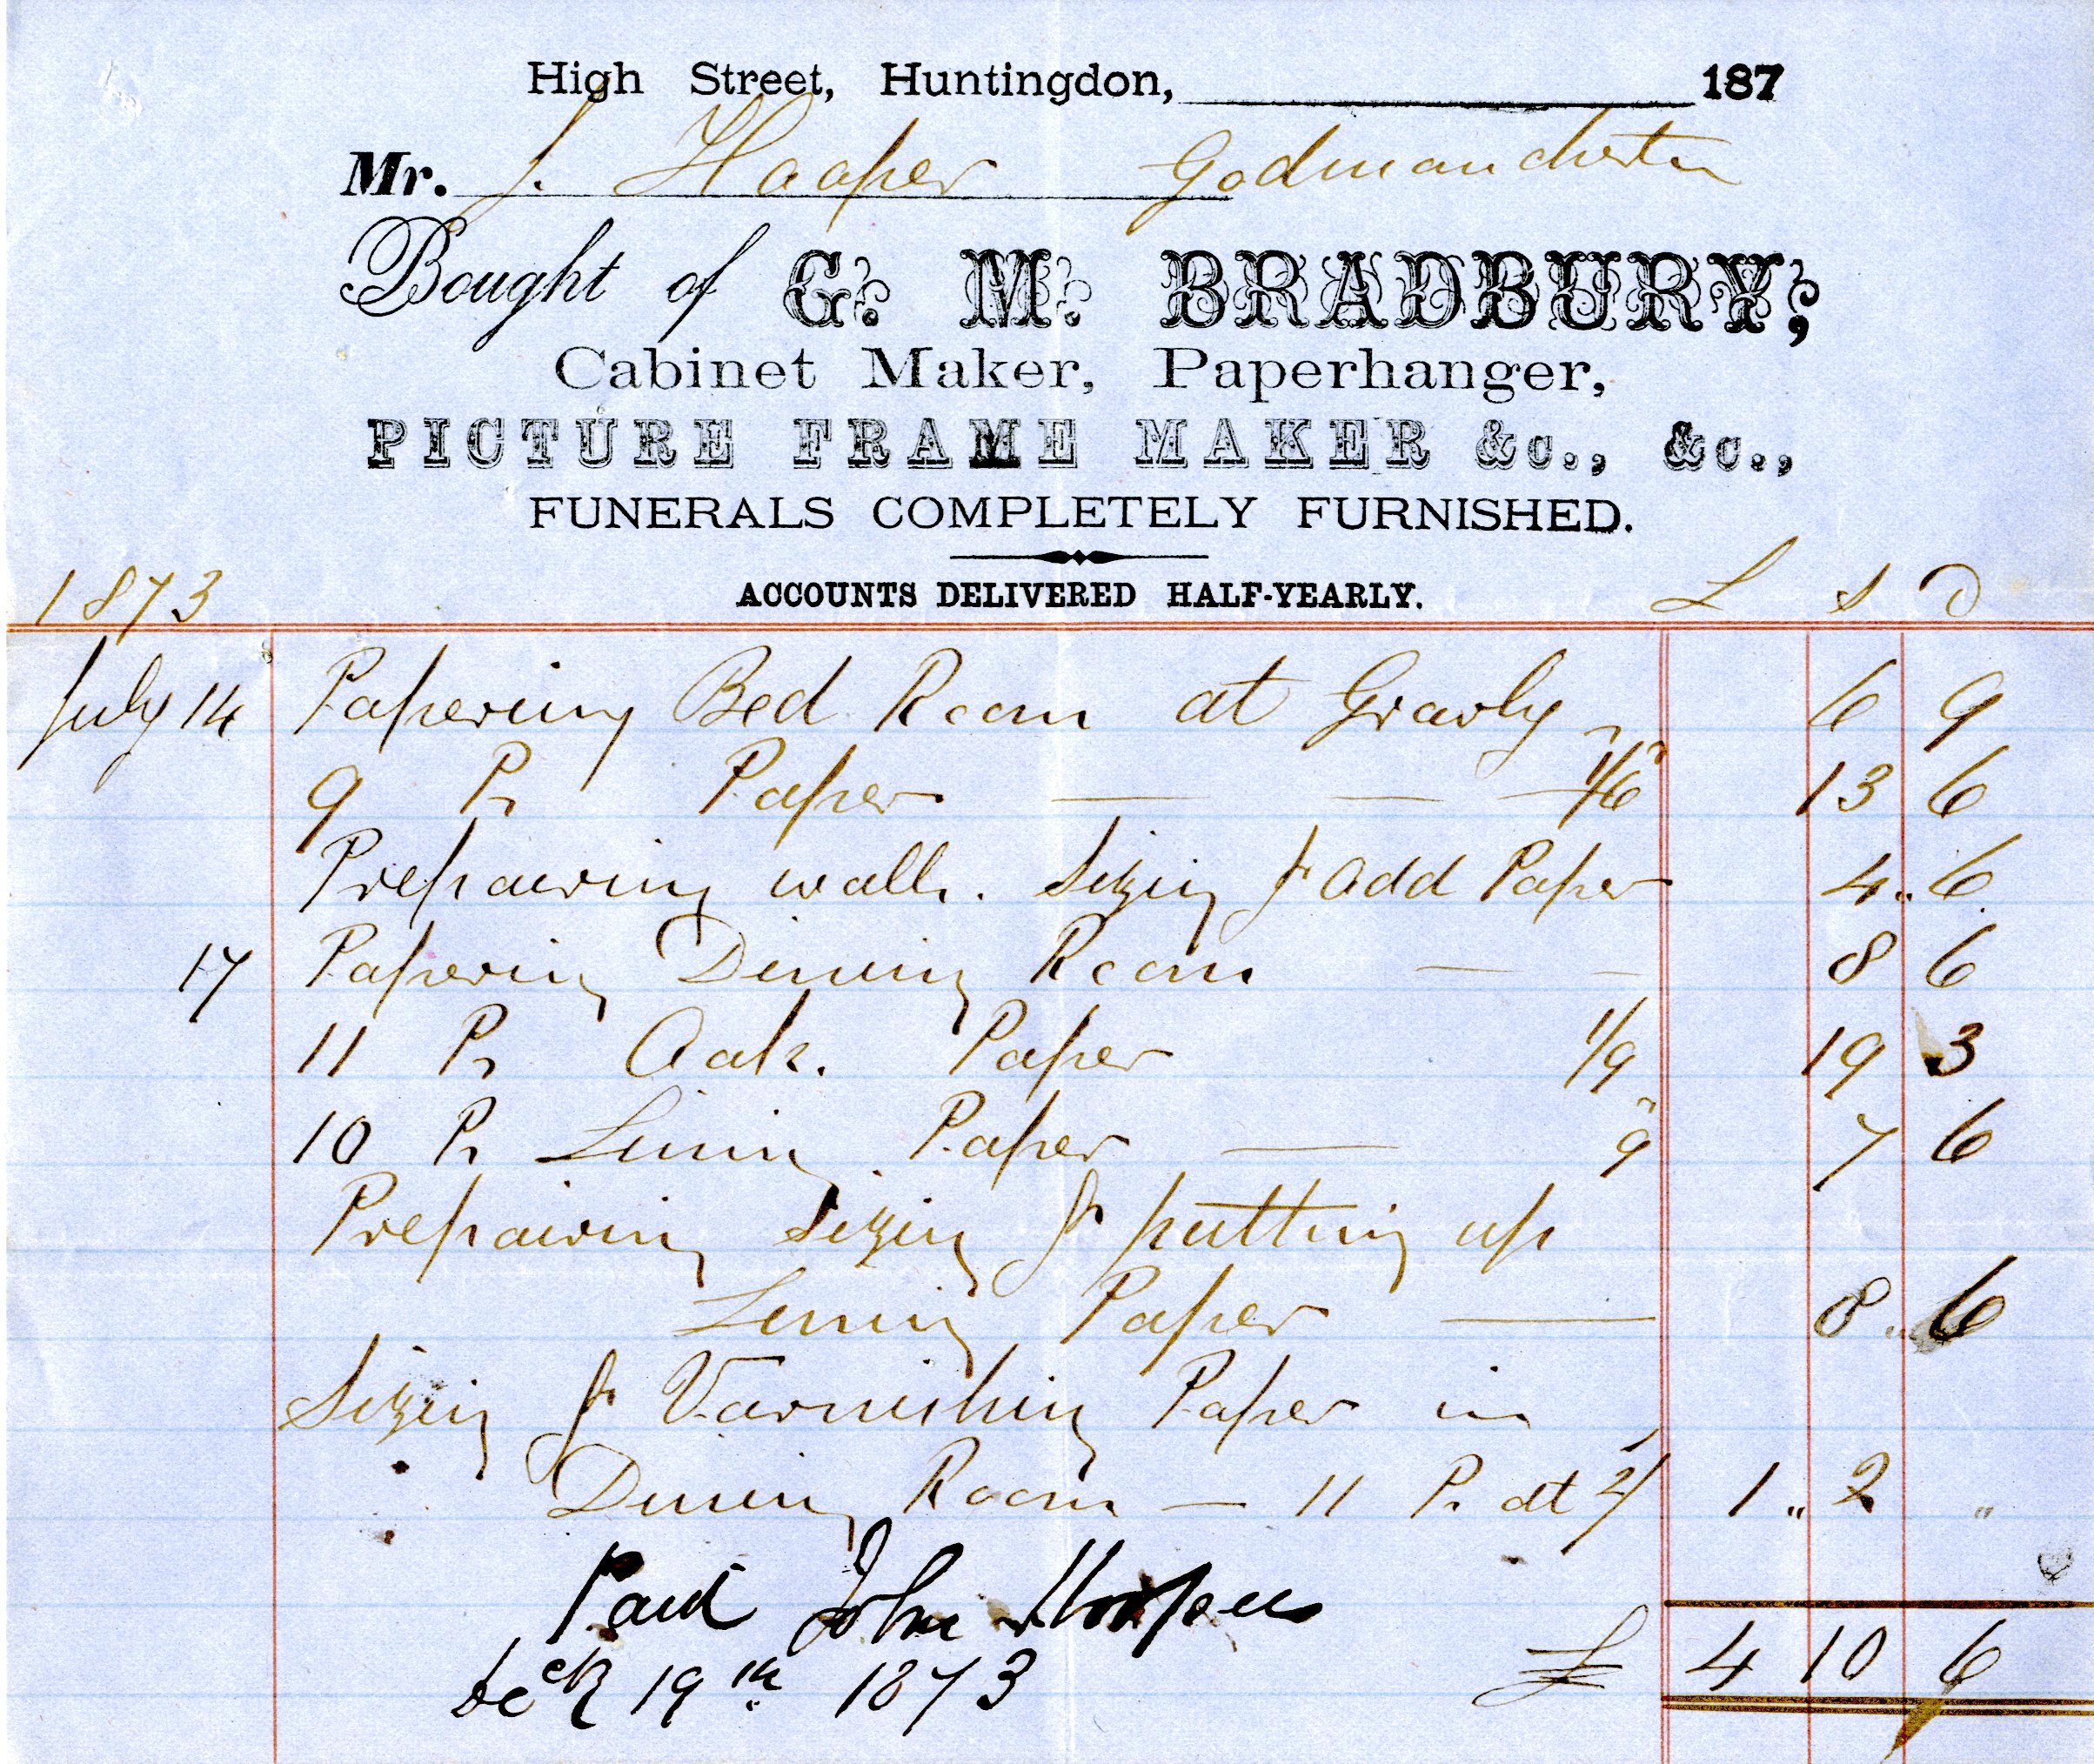 High Street, Huntingdon, 187
Mr. J. Hooper Godmanchester
Bought of G. M. BRADBURY,
Cabinet Maker, Paperhanger,
PICTURE FRAME MAKER &c., &c.,
FUNERALS COMPLETELY FURNISHED.
ACCOUNTS DELIVERED HALF-YEARLY.
1873 L S D
July 14 Papering Bed Room at Gravly 6 9
9 Ps Paper 1/6 13 6
Prepairing walls. Sizing & add Paper 4 " 6
17 Papering Dining Room 8 6
11 Ps Oak. Paper 1/9 19 3
10 Ps Lining Paper 9 7 6
Prepairing Sizing & putting up
Lining Paper 8 " 6
Sizing & Varnishing Paper in
Dining Room — 11 P. at 2/ 1 " 2 "
Paid John Hooper
19th 1873 £ 4 10 6